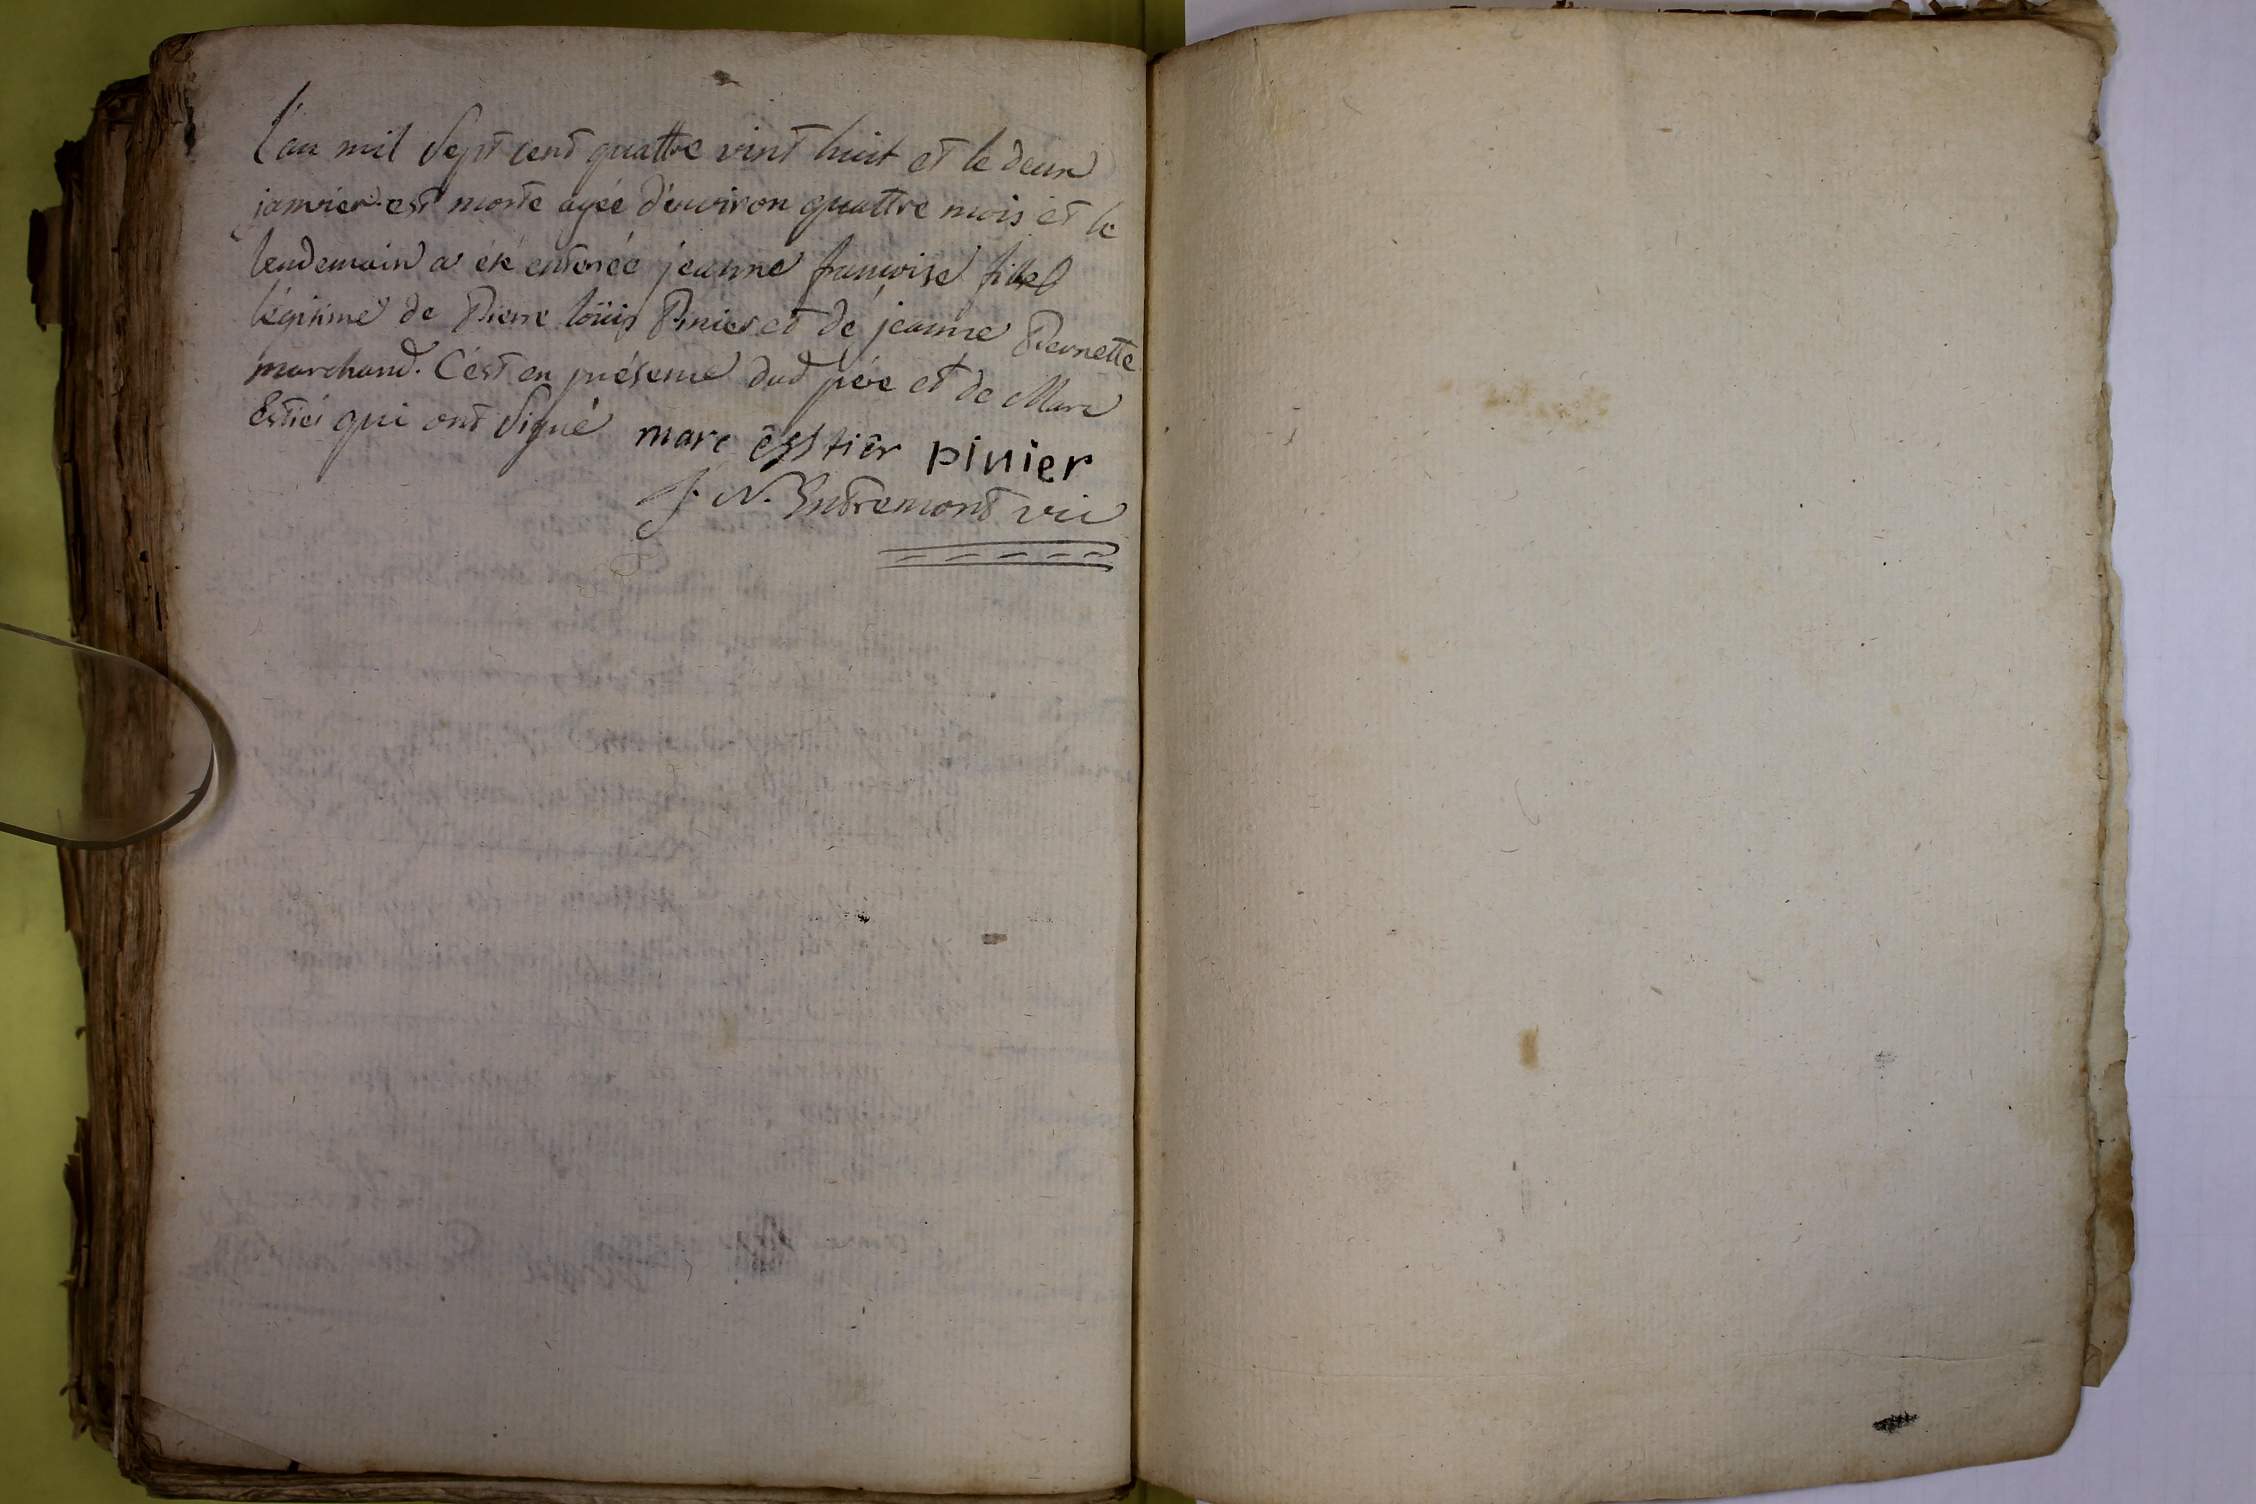 L'an mil sept cent quattre vint huit et le deux
janvier est morte agée d'environ quattre mois et le
lendemain a été enterrée jeanne françoise fille
légitime de Pierre loüis Pinier et de jeanne Pernette
marchand. C'est en présence dud père et de Marc
Estier qui ont signé marc esstier pinier
J. N. Entremont vic